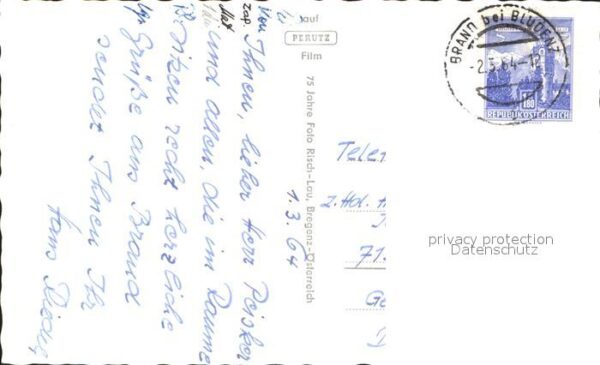 1.3.64
von Ihnen, lieber Herr Peisker
und allen, die im Raume
sitzen recht herzliche
Grüße aus Brand
sendet Ihnen Ihr
Hans
auf
PERUTZ
Film
75 Jahre Foto Risch-Lau, Bregenz-Österreich
BRAND bei BLUDENZ
-2.3.64-12
REPUBLIK ÖSTERREICH
Telef
2. Hol. H
71.
Ge
privacy protection
Datenschutz